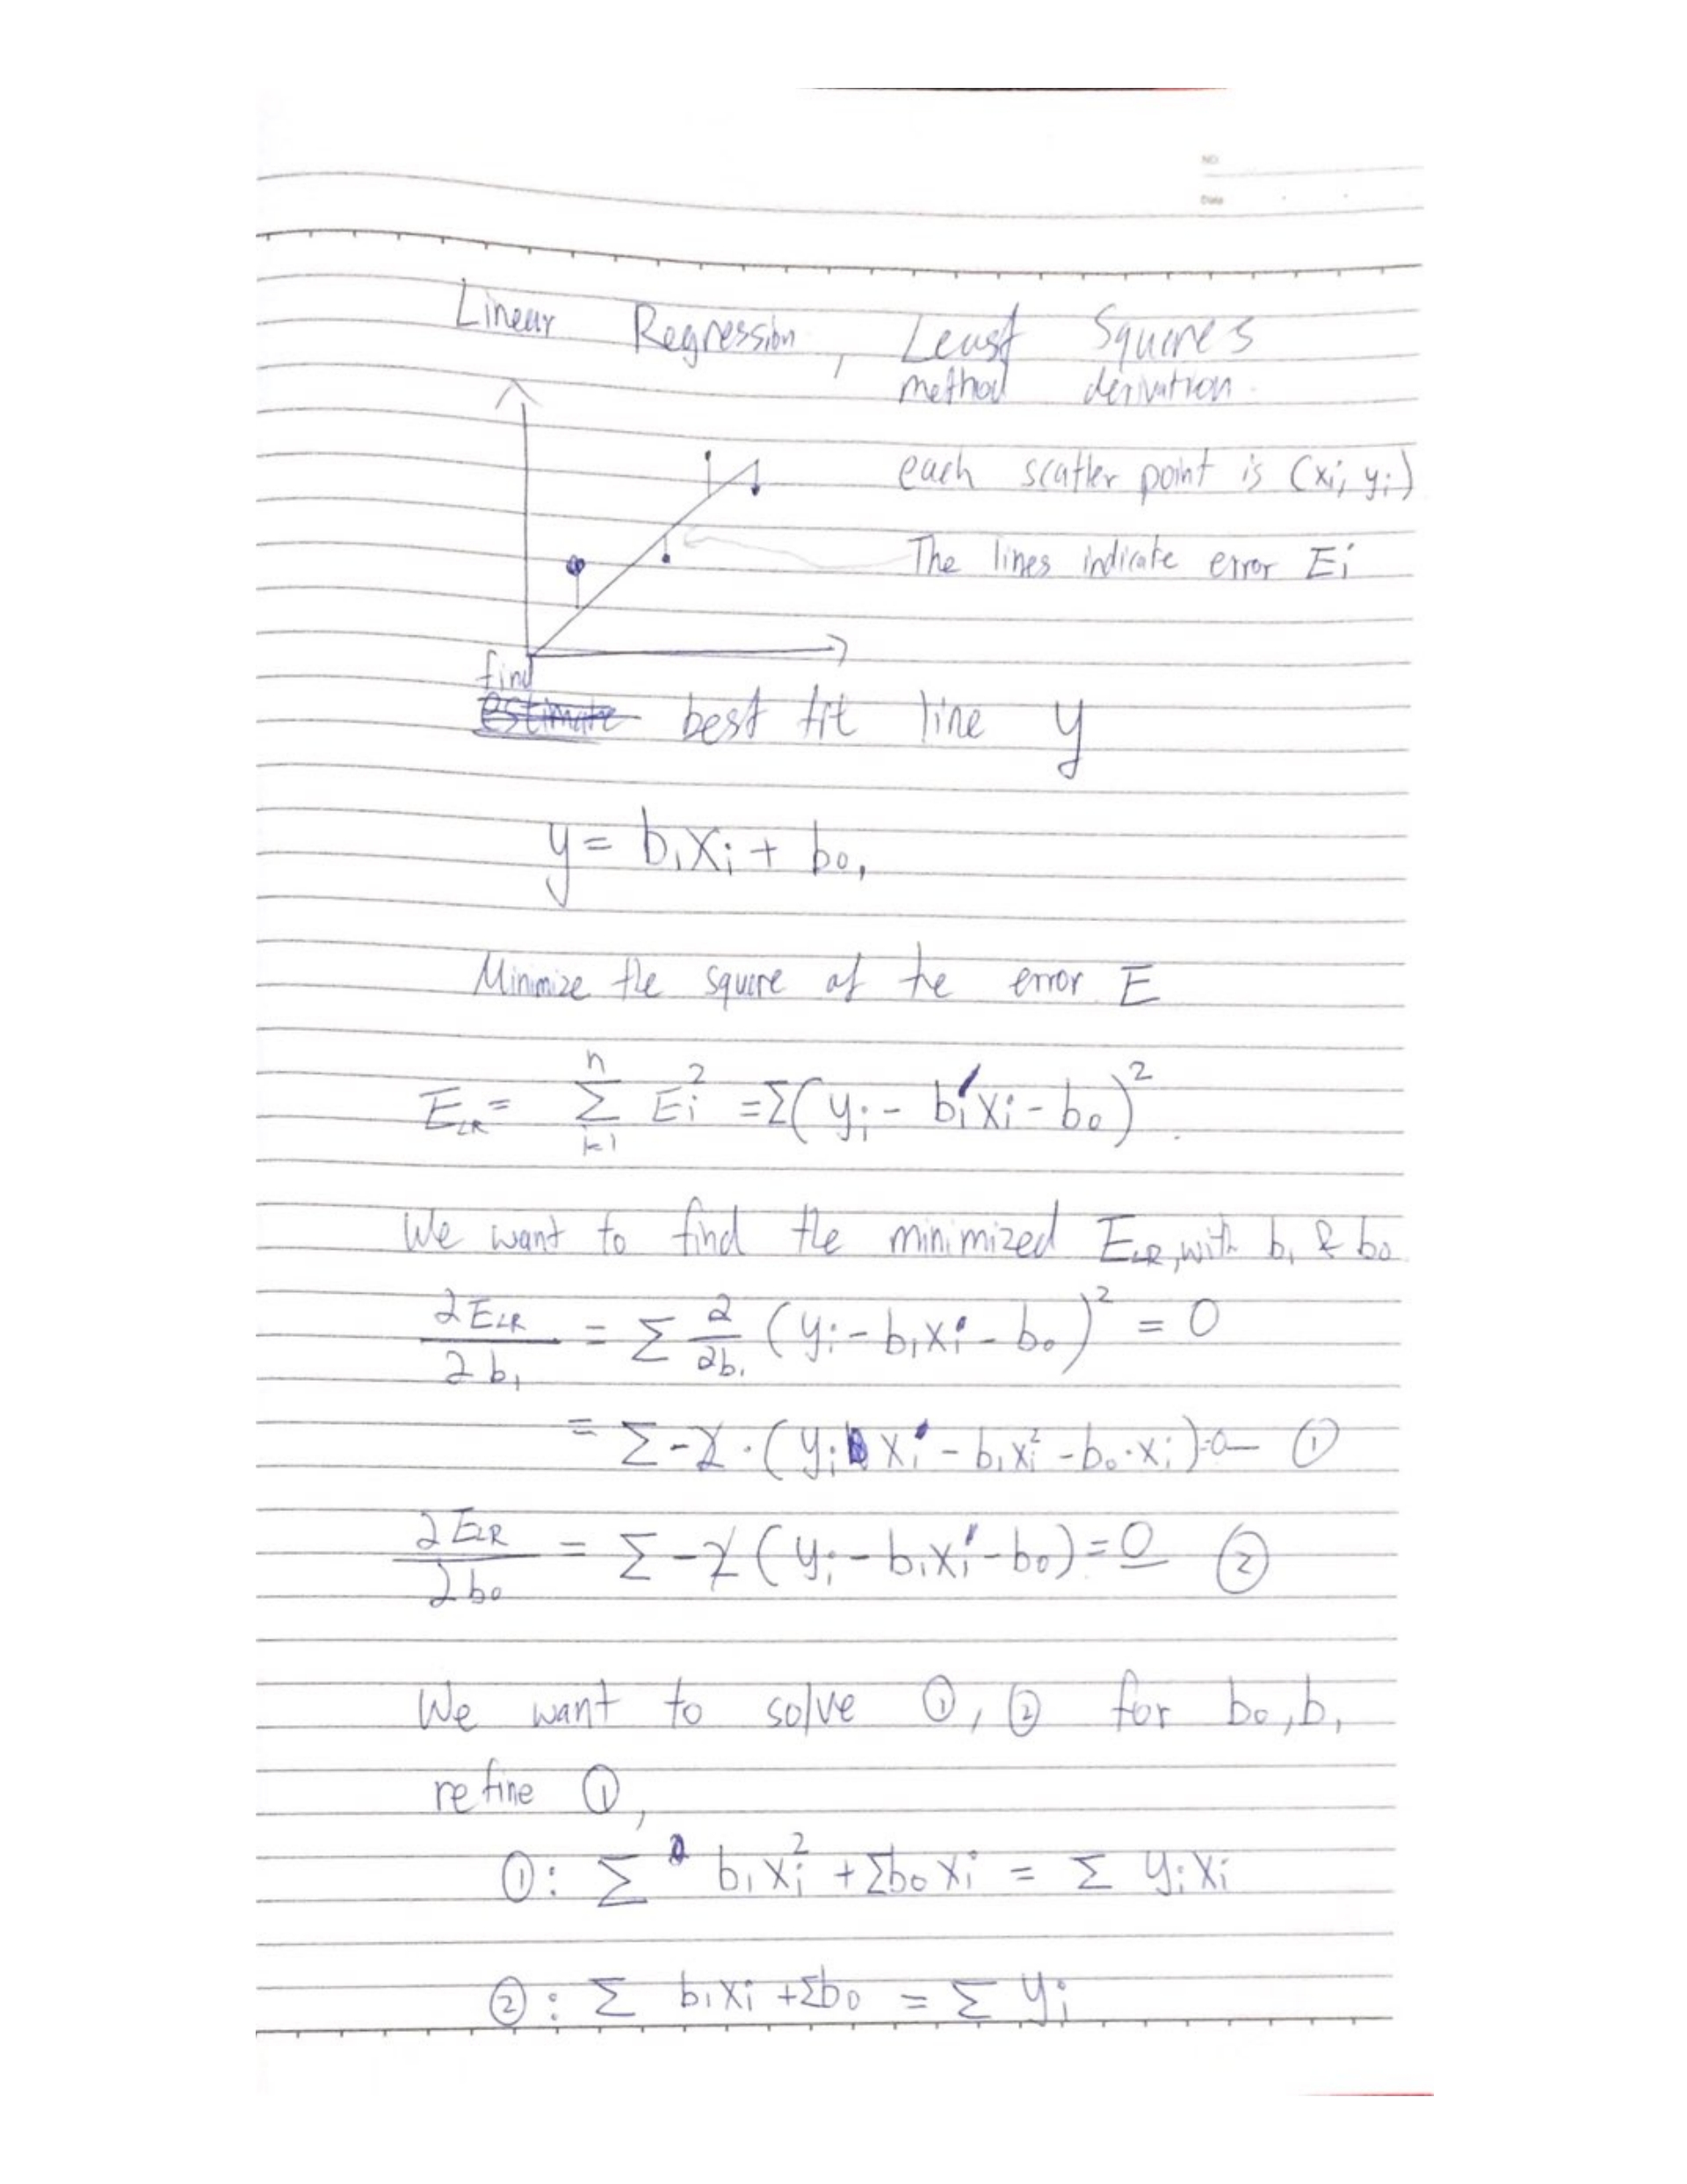 NO.
Date
Linear Regression, Least Squares
method derivation.
each scatter point is (xi, yi)
The lines indicate error Ei
find
estimate best fit line y
y = b₁xi + b₀,
Minimize the square of the error E
E_LR = Σ_{i=1}^{n} Ei² = Σ(yi - b₁xi - b₀)².
We want to find the minimized E_LR, with b₁ & b₀
∂E_LR/∂b₁ = Σ ∂/∂b₁ (yi - b₁xi - b₀)² = 0
= Σ -2 · (yi xi - b₁xi² - b₀·xi) = 0 — ①
∂E_LR/∂b₀ = Σ -2 (yi - b₁xi - b₀) = 0 ②
We want to solve ①, ② for b₀, b₁
refine ①,
①: Σ b₁xi² + Σb₀xi = Σ yi xi
②: Σ b₁xi + Σb₀ = Σ yi